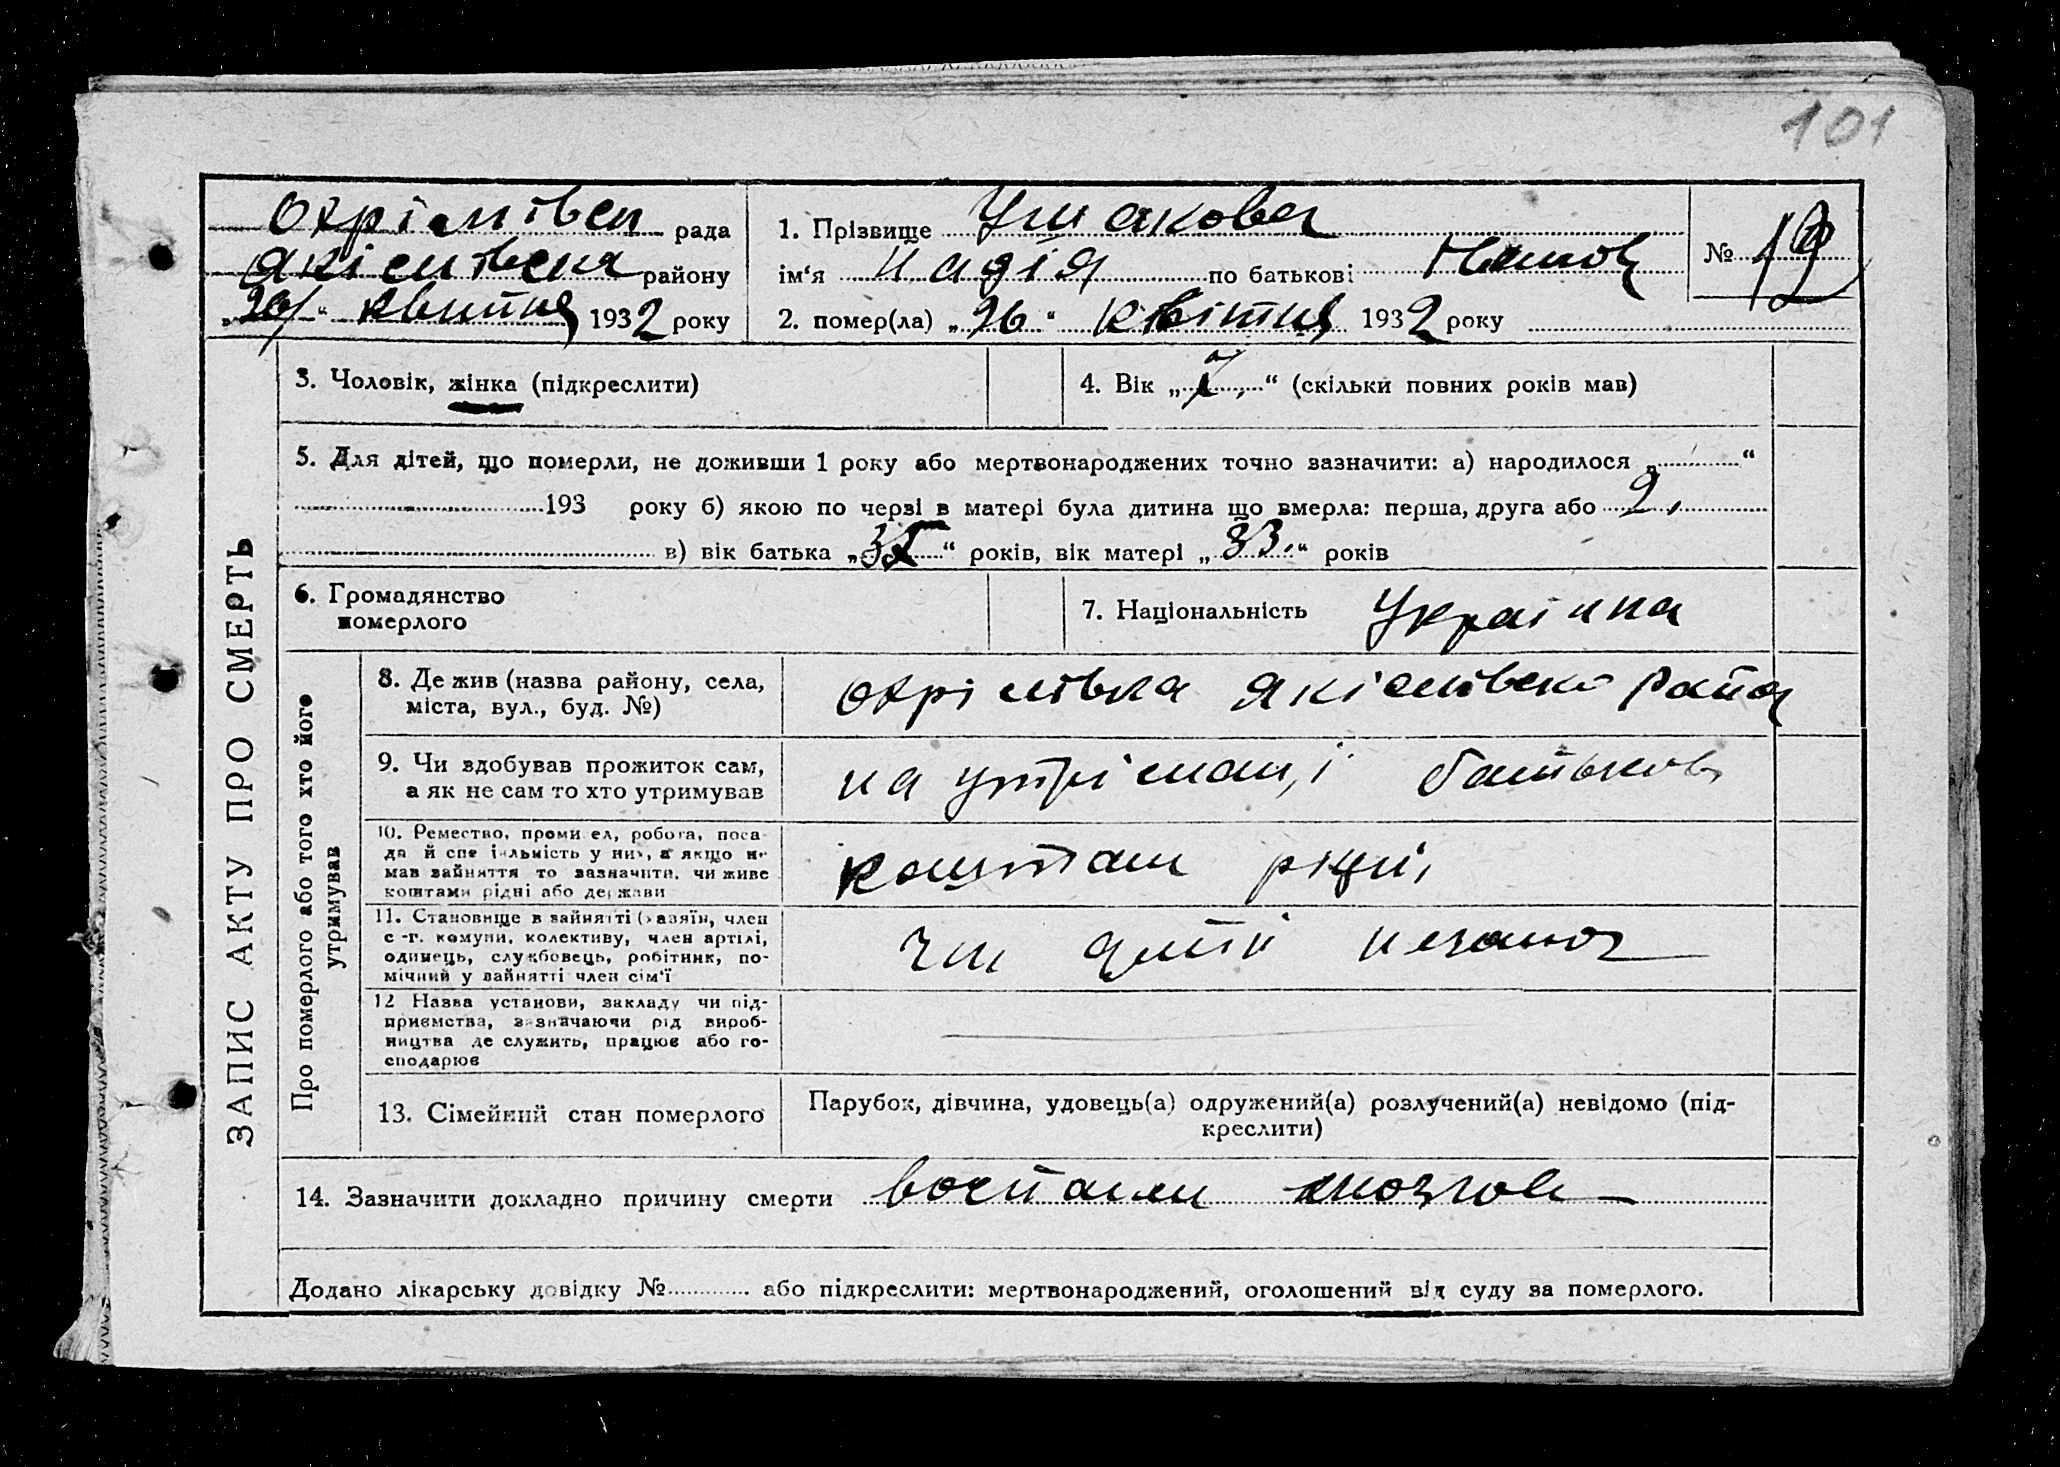 101
Охрімівск рада
Якімівськ району
"29" квітня 1932 року
1. Прізвище Ушакова
ім'я Надія по батькові
2. помер(ла) „26" квітня 1932 року
№ 12
ЗАПИС АКТУ ПРО СМЕРТЬ
3. Чоловік, жінка (підкреслити)
4. Вік „ " (скільки повних років мав)
5. Для дітей, що померли, не доживши 1 року або мертвонароджених точно зазначити: а) народилося „ "
193 року б) якою по черзі в матері була дитина що вмерла: перша, друга або 2,
в) вік батька „ " років, вік матері „33." років
6. Громадянство
померлого
7. Національність Українка
Про померлого або того хто його
утримував
8. Де жив (назва району, села,
міста, вул., буд. №)
Охрімівка Якімівско Район
9. Чи здобував прожиток сам,
а як не сам то хто утримував
на утріманні батьков
10. Ремество, промисел, робота, поса-
да й спеціяльність у них, а якщо не
мав зайняття то зазначити, чи живе
коштами рідні або держави
коштами рідні
11. Становище в зайнятті (хазяїн, член
с.-г. комуни, колективу, член артілі,
одинець, службовець, робітник, по-
мічний у зайнятті член сім'ї
член
12 Назва установи, закладу чи під-
приємства, зазначаючи рід вироб-
ництва де служить, працює або го-
сподарює
13. Сімейний стан померлого
Парубок, дівчина, удовець(а) одружений(а) розлучений(а) невідомо (під-
креслити)
14. Зазначити докладно причину смерти воспален мозгов
Додано лікарську довідку № або підкреслити: мертвонароджений, оголошений від суду за померлого.